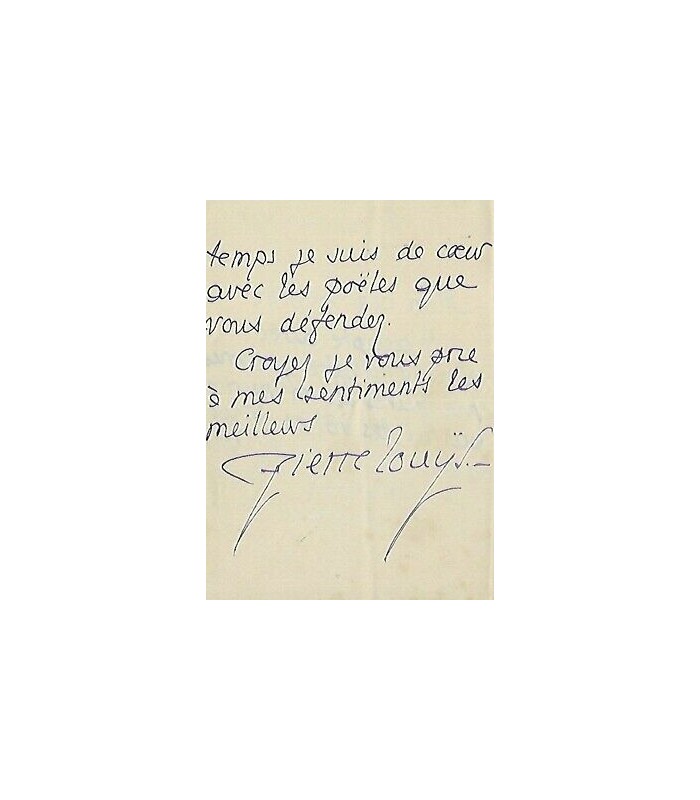 temps je suis de cœur
avec les poëtes que
vous défendez.
Croyez je vous prie
à mes sentiments les
meilleurs
Pierre Louÿs.